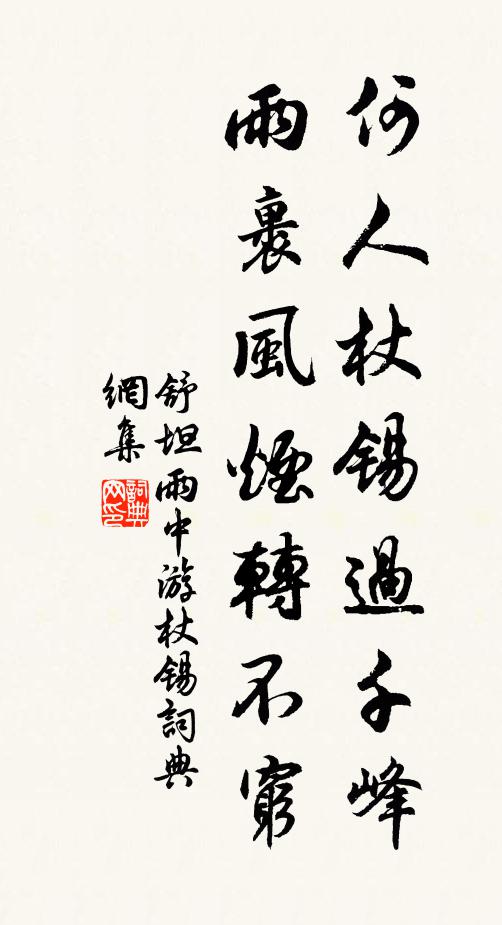 何人杖錫過千峰
雨裏風煙轉不窮
舒坦雨中游杖錫詞典
網集
詞典網印